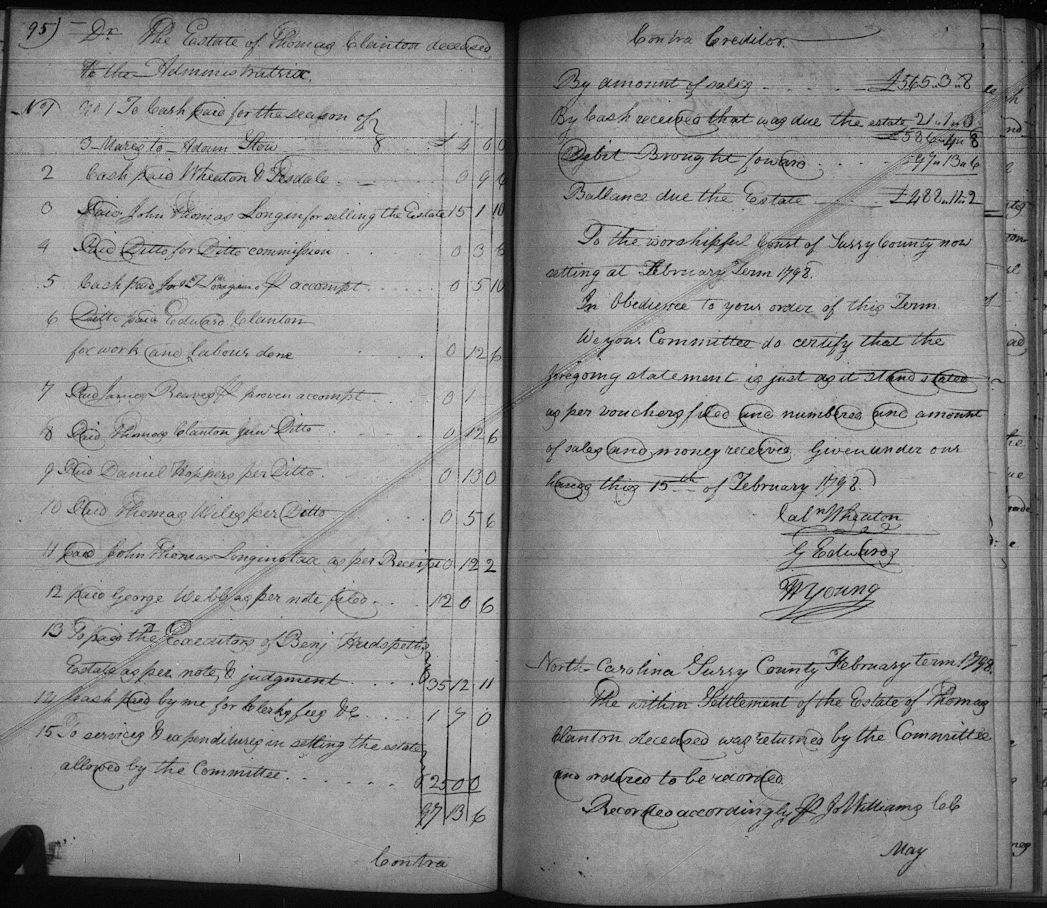 95) Dr. The Estate of Thomas Clainton deceased
to the Administratrix
No 1 To Cash paid for the season of
3 Mares to Adam Stow £ 4 0 0
2 Cash paid Wheaton & Tisdale 0 9 6
3 Paid John Thomas Longin for selling the Estate 15 1 10
4 Paid Ditto for Ditto commission 0 3 6
5 Cash paid accompt 0 5 10
6 Ditto paid Edward Clanton
for work and labour done 0 12 6
7 Paid James Reaves proven accompt 0 1
8 Paid Thomas Clanton junr Ditto 0 12 6
9 Paid Daniel Hoppers per Ditto 0 13 0
10 Paid Thomas Wiles per Ditto 0 5 6
11 paid John Thomas as per Receipt 0 12 2
12 paid George Webb as per note filed 12 0 6
13 To paid the Executors of Benj Hudspeths
Estate as per note & judgment 35 12 11
14 Cash paid by me for Clerks fees &c 1 7 0
15 To services & expenditures in setling the estate
allowed by the Committee 25 0 0
97 13 6
Contra
Contra Creditor.
By amount of sales £565.3.8
By Cash received that was due the estate 21.1.0
£586.4.8
Debit Brought forward 97.13.6
Ballance due the Estate £488.11.2
To the worshipful Court of Surry County now
setting at February Term 1798.
In Obedience to your order of this Term
We your Committee do certify that the
foregoing statement is just as it stands stated
as per vouchers filed and numbered and amount
of sales and money received Given under our
hands this 15th of February 1798.
Wheaton
G Edwards
Young
North Carolina Surry County February term 1798.
The within Settlement of the Estate of Thomas
Clanton deceased was returned by the Committee
and ordered to be recorded
Recorded accordingly Jo Williams CC
May